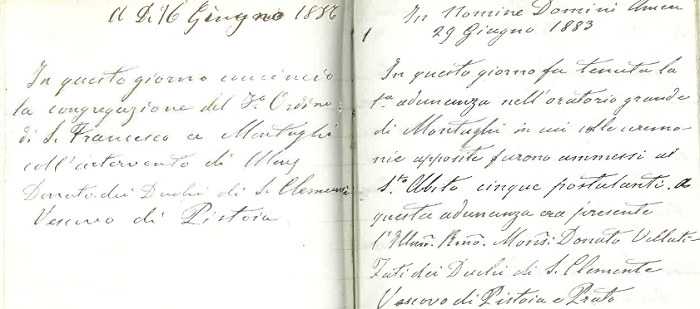 A Dì 16 Giugno 1882
In questo giorno cominciò
la congregazione del 3º Ordine
di S. Francesco a Montaghi
coll'intervento di Mons
Donato dei Duchi di S. Clemente
Vescovo di Pistoia
In Nomine Domini Amen
1 29 Giugno 1883
In questo giorno fu tenuta la
1ª adunanza nell'oratorio grande
di Montaghi in cui colle ceremo
nie apposite furono ammessi al
S.to Abito cinque postulanti. a
questa adunanza era presente
l'Illmo. Rmo. Mons. Donato Velluti-
Zati dei Duchi di S. Clemente
Vescovo di Pistoia e Prato